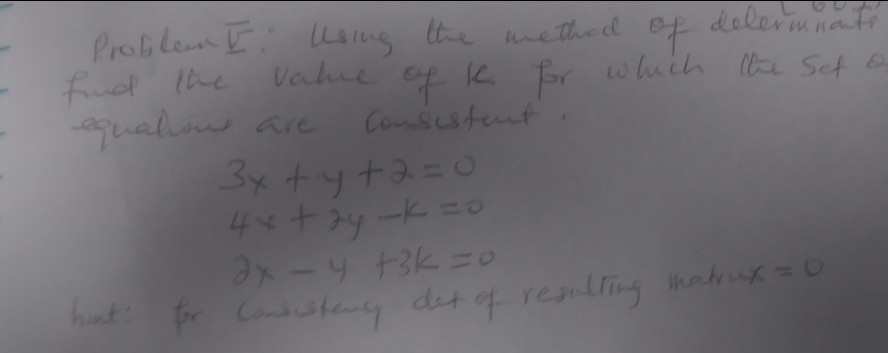 Problem V: Using the method of determinants
find the value of k for which the set o
equations are consistent.
3x + y + 2 = 0
4x + 2y - k = 0
2x - y + 3k = 0
hint: for consistency det of resulting matrix = 0